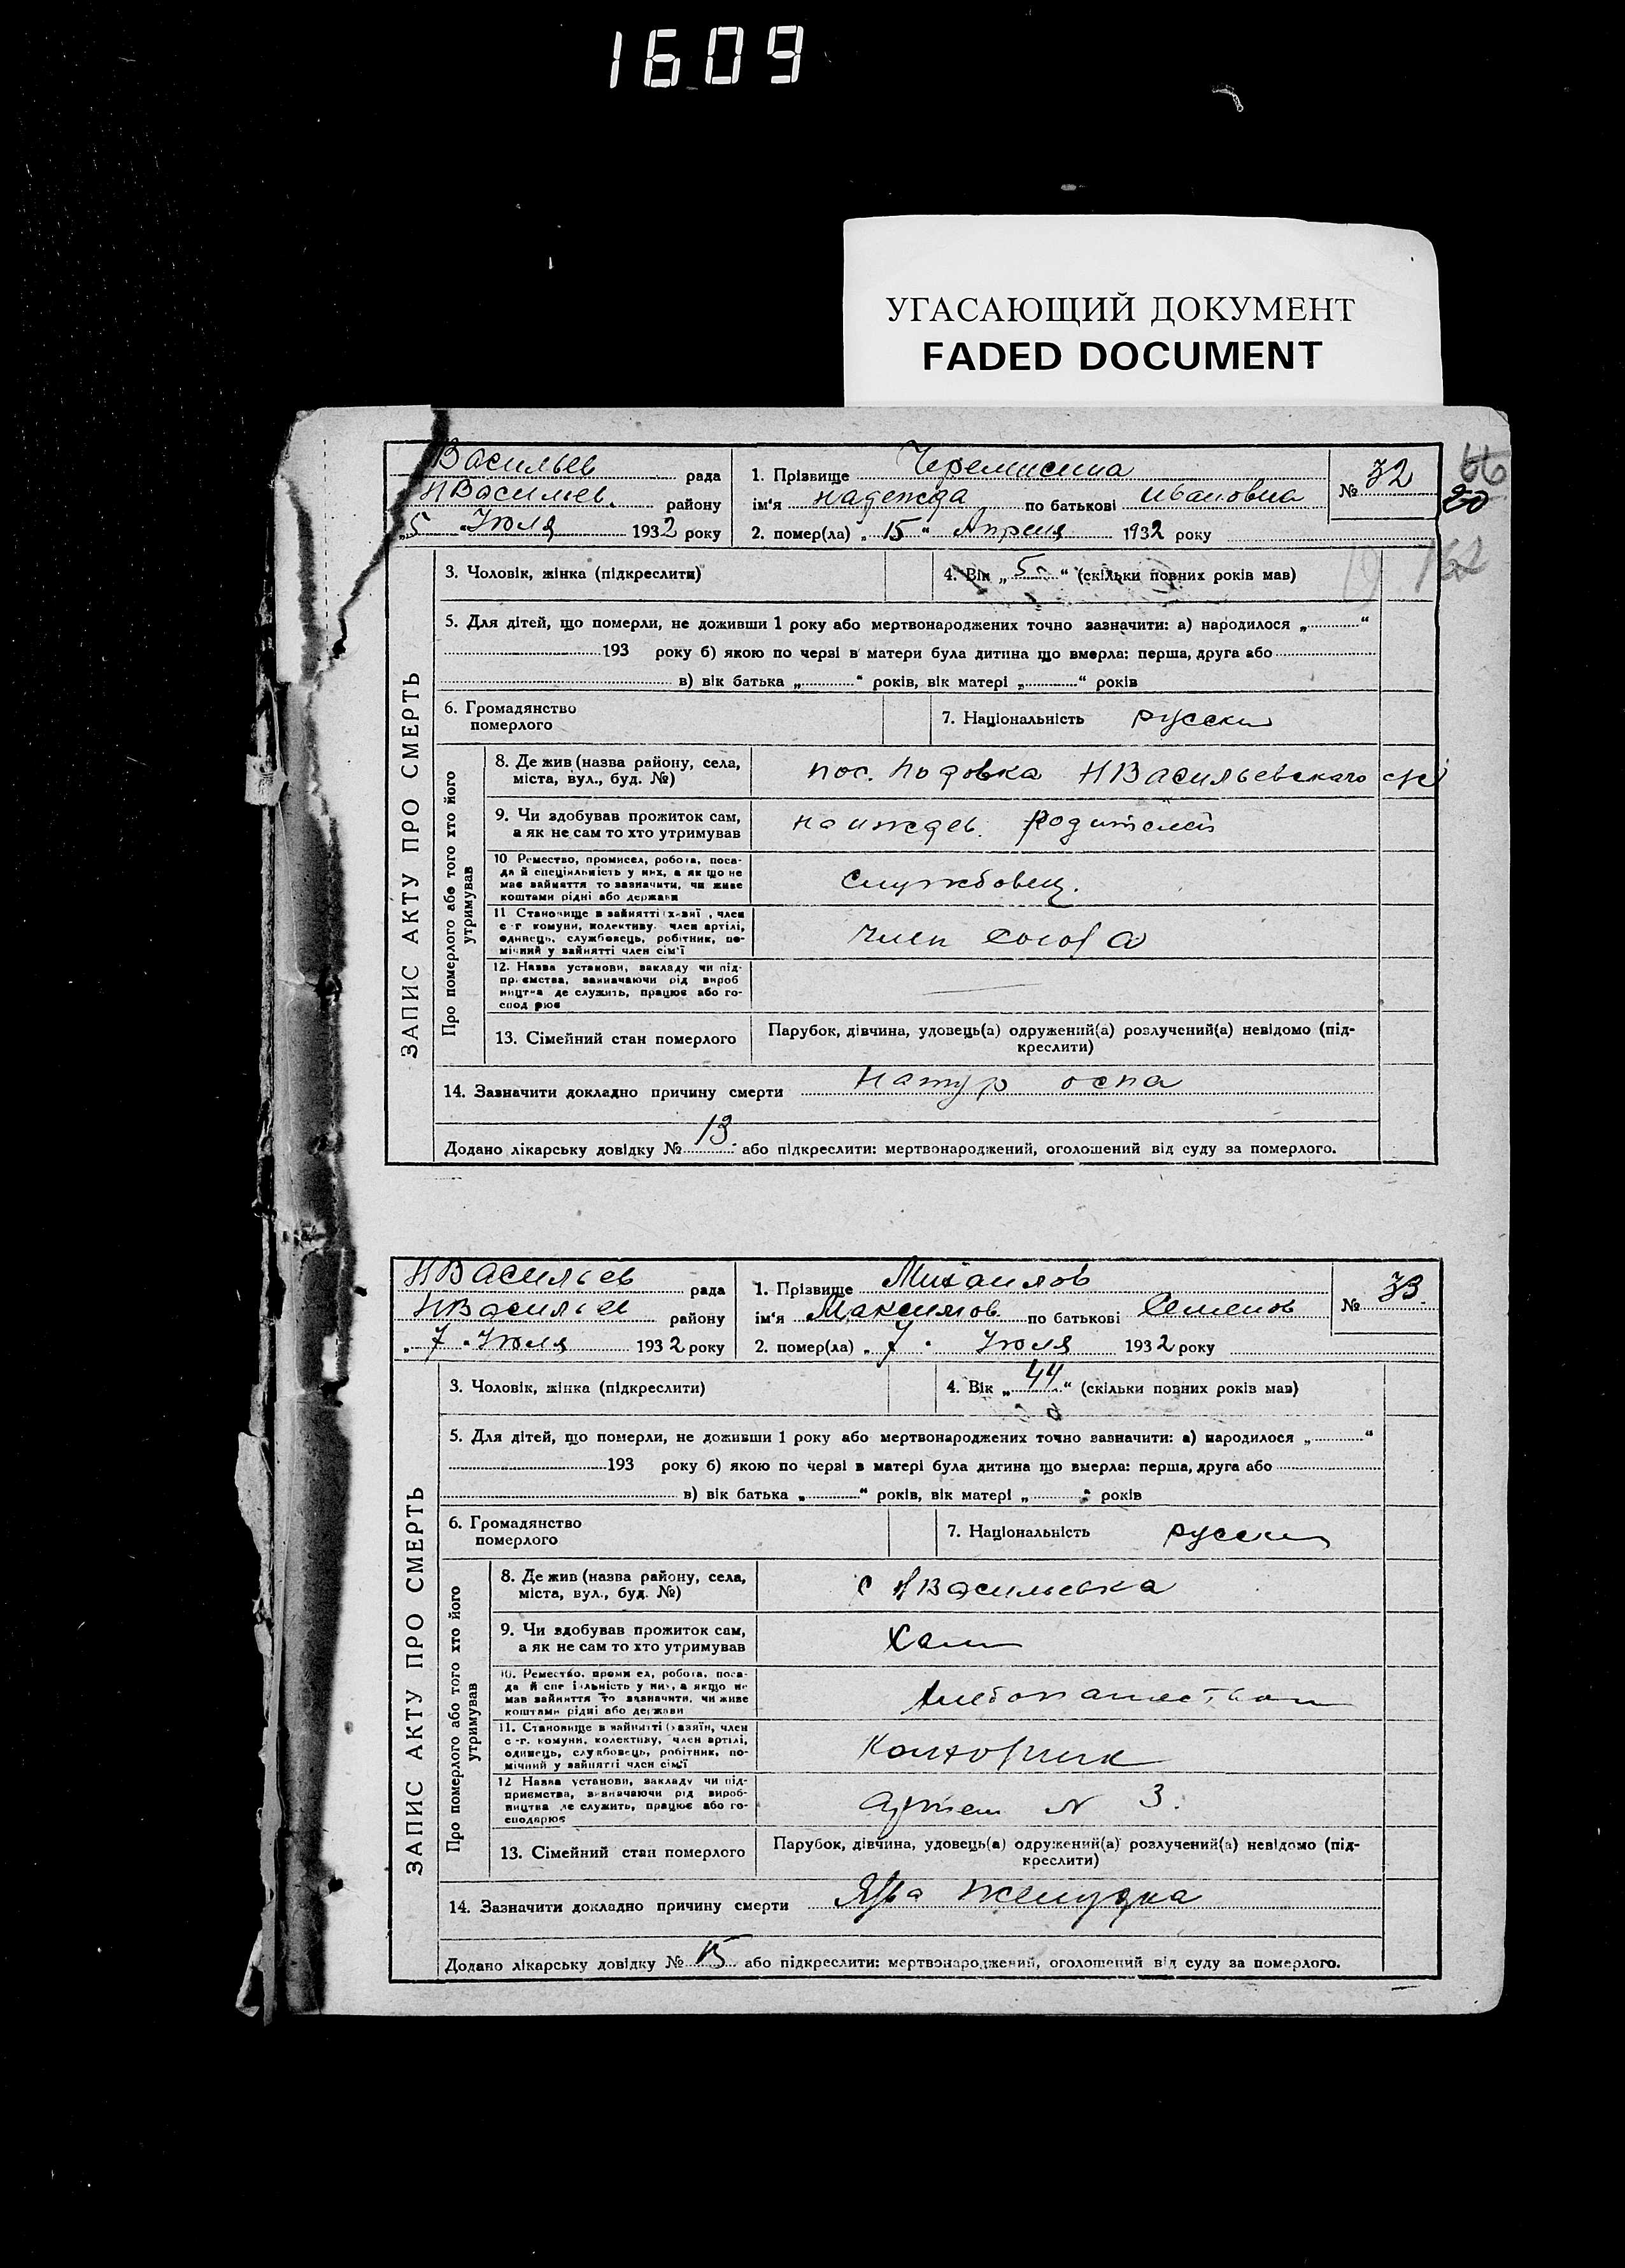 1609
УГАСАЮЩИЙ ДОКУМЕНТ
FADED DOCUMENT
66
20
162
ЗАПИС АКТУ ПРО СМЕРТЬ
Васильев рада
НВасильев. району
„5 " Июля 1932 року
1. Прізвище Черемисина
ім'я надежда по батькові ивановна
2. помер(ла) „ 15 " Апреля 1932 року
№ 32
3. Чоловік, жінка (підкреслити)
4. Вік „ 5 " (скільки повних років мав)
5. Для дітей, що померли, не доживши 1 року або мертвонароджених точно зазначити: а) народилося „ "
193 року б) якою по черзі в матери була дитина що вмерла: перша, друга або
в) вік батька „ " років, вік матері „ " років
6. Громадянство
померлого
7. Національність русски
Про померлого або того хто його
утримував
8. Де жив (назва району, села,
міста, вул., буд. №)
пос. Подовка НВасильевскаго с/с
9. Чи здобував прожиток сам,
а як не сам то хто утримував
на иждев. родителей
10 Ремество, промисел, робота, поса-
да й спеціяльність у них, а як що не
має зайняття то зазначити, чи живе
коштами рідні або держави
службовец.
11 Становище в зайнятті х-зяї , член
с -г комуни, колективу. член артілі,
одинець, службовець, робітник, по-
мічний у зайнятті член сім'ї
член союза
12. Назва установи, закладу чи під-
приємства, зазначаючи рід вироб
ництва де служить, працює або го-
спод рює
13. Сімейний стан померлого
Парубок, дівчина, удовець(а) одружений(а) розлучений(а) невідомо (під-
креслити)
14. Зазначити докладно причину смерти натур оспа
Додано лікарську довідку № 13. або підкреслити: мертвонароджений, оголошений від суду за померлого.
ЗАПИС АКТУ ПРО СМЕРТЬ
НВасильев рада
НВасильев району
„ 7 " Июля 1932 року
1. Прізвище Михаилов
ім'я Максимов по батькові Семенов
2. помер(ла) „ 7 " Июля 1932 року
№ 33.
3. Чоловік, жінка (підкреслити)
4. Вік „ 44 " (скільки повних років мав)
5. Для дітей, що померли, не доживши 1 року або мертвонароджених точно зазначити: а) народилося „ "
193 року б) якою по черзі в матері була дитина що вмерла: перша, друга або
в) вік батька „ " років, вік матері „ " років
6. Громадянство
померлого
7. Національність русски
Про померлого або того хто його
утримував
8. Де жив (назва району, села,
міста, вул., буд. №)
с НВасильевка
9. Чи здобував прожиток сам,
а як не сам то хто утримував
10. Ремество, проми ел, робота, поса-
да й спе і-льність у них, а якщо не
мав зайняття то зазначити, чи живе
коштами рідні або держави
11. Становище в зайнятті (хазяїн, член
с -г. комуни, колективу, член артілі,
одинець, службовець, робітник, по-
мічний у зайнятті член сім'ї
12 Назва установи, закладу чи під-
приємства, зазначаючи рід вироб-
ництва де служить, працює або го-
сподарює
артель N 3.
13. Сімейний стан померлого
Парубок, дівчина, удовець(а) одружений(а) розлучений(а) невідомо (під-
креслити)
14. Зазначити докладно причину смерти Язва желудка
Додано лікарську довідку № 15 або підкреслити: мертвонароджений, оголошений від суду за померлого.